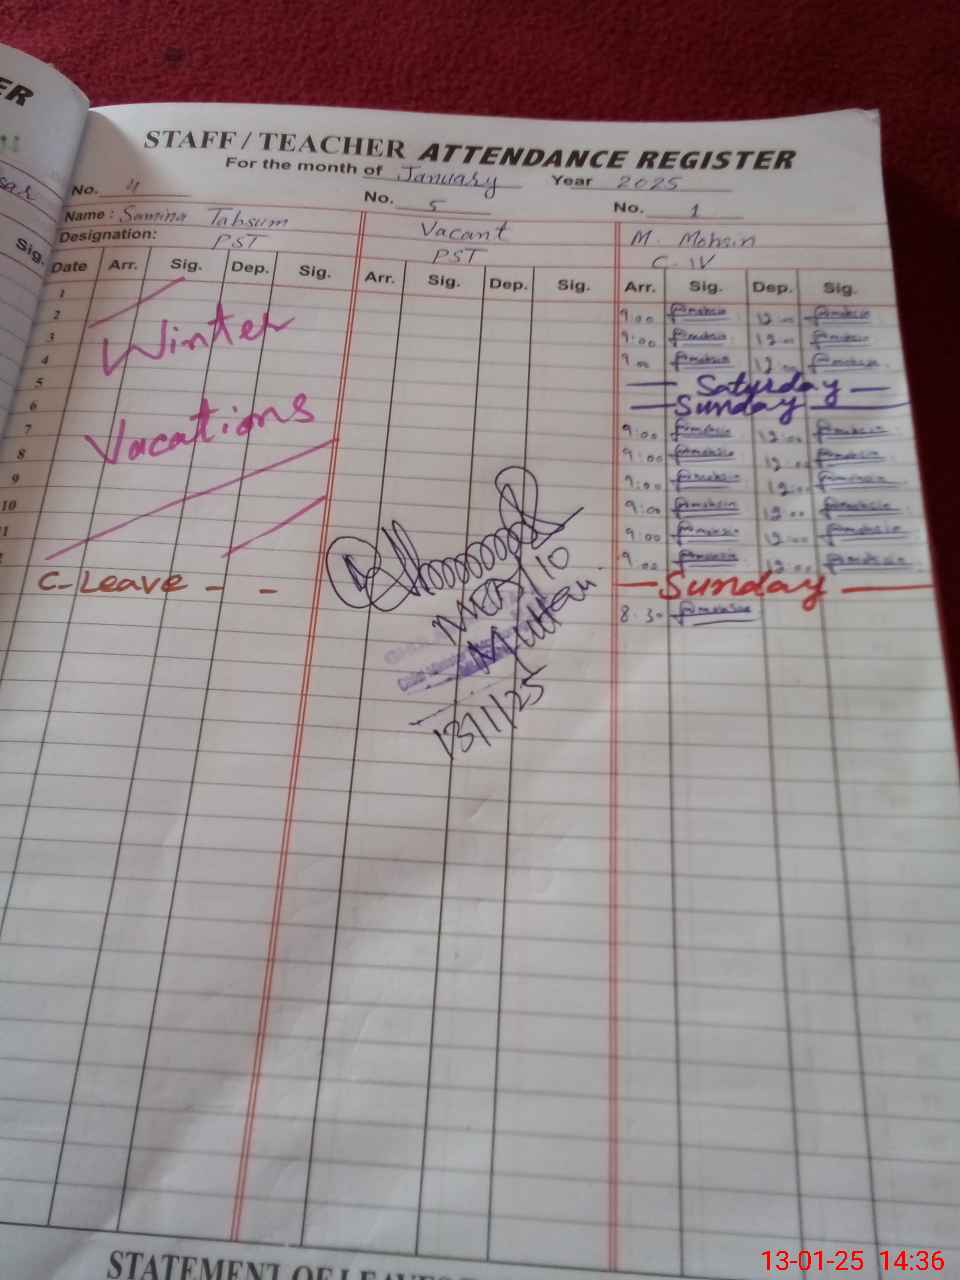 ER
STAFF / TEACHER ATTENDANCE REGISTER
For the month of January Year 2025
No. 4 No. 5 No. 1
Name: Samina Tabsum Vacant M. Mohsin
Designation: PST PST C-IV
Sig.
Date Arr. Sig. Dep. Sig. Arr. Sig. Dep. Sig. Arr. Sig. Dep. Sig.
1
2 9:00 12:00
3 Winter 9:00 12:00
4 9:00 12:00
5 Saturday
6 Sunday
7 Vacations 9:00 12:00
8 9:00 12:00
9 9:00 12:00
10 9:00 12:00
9:00 12:00
9:00 12:00
C-Leave - - Sunday
8:30
Multan
13/1/25
STATEMENT OF LEAVES
13-01-25 14:36